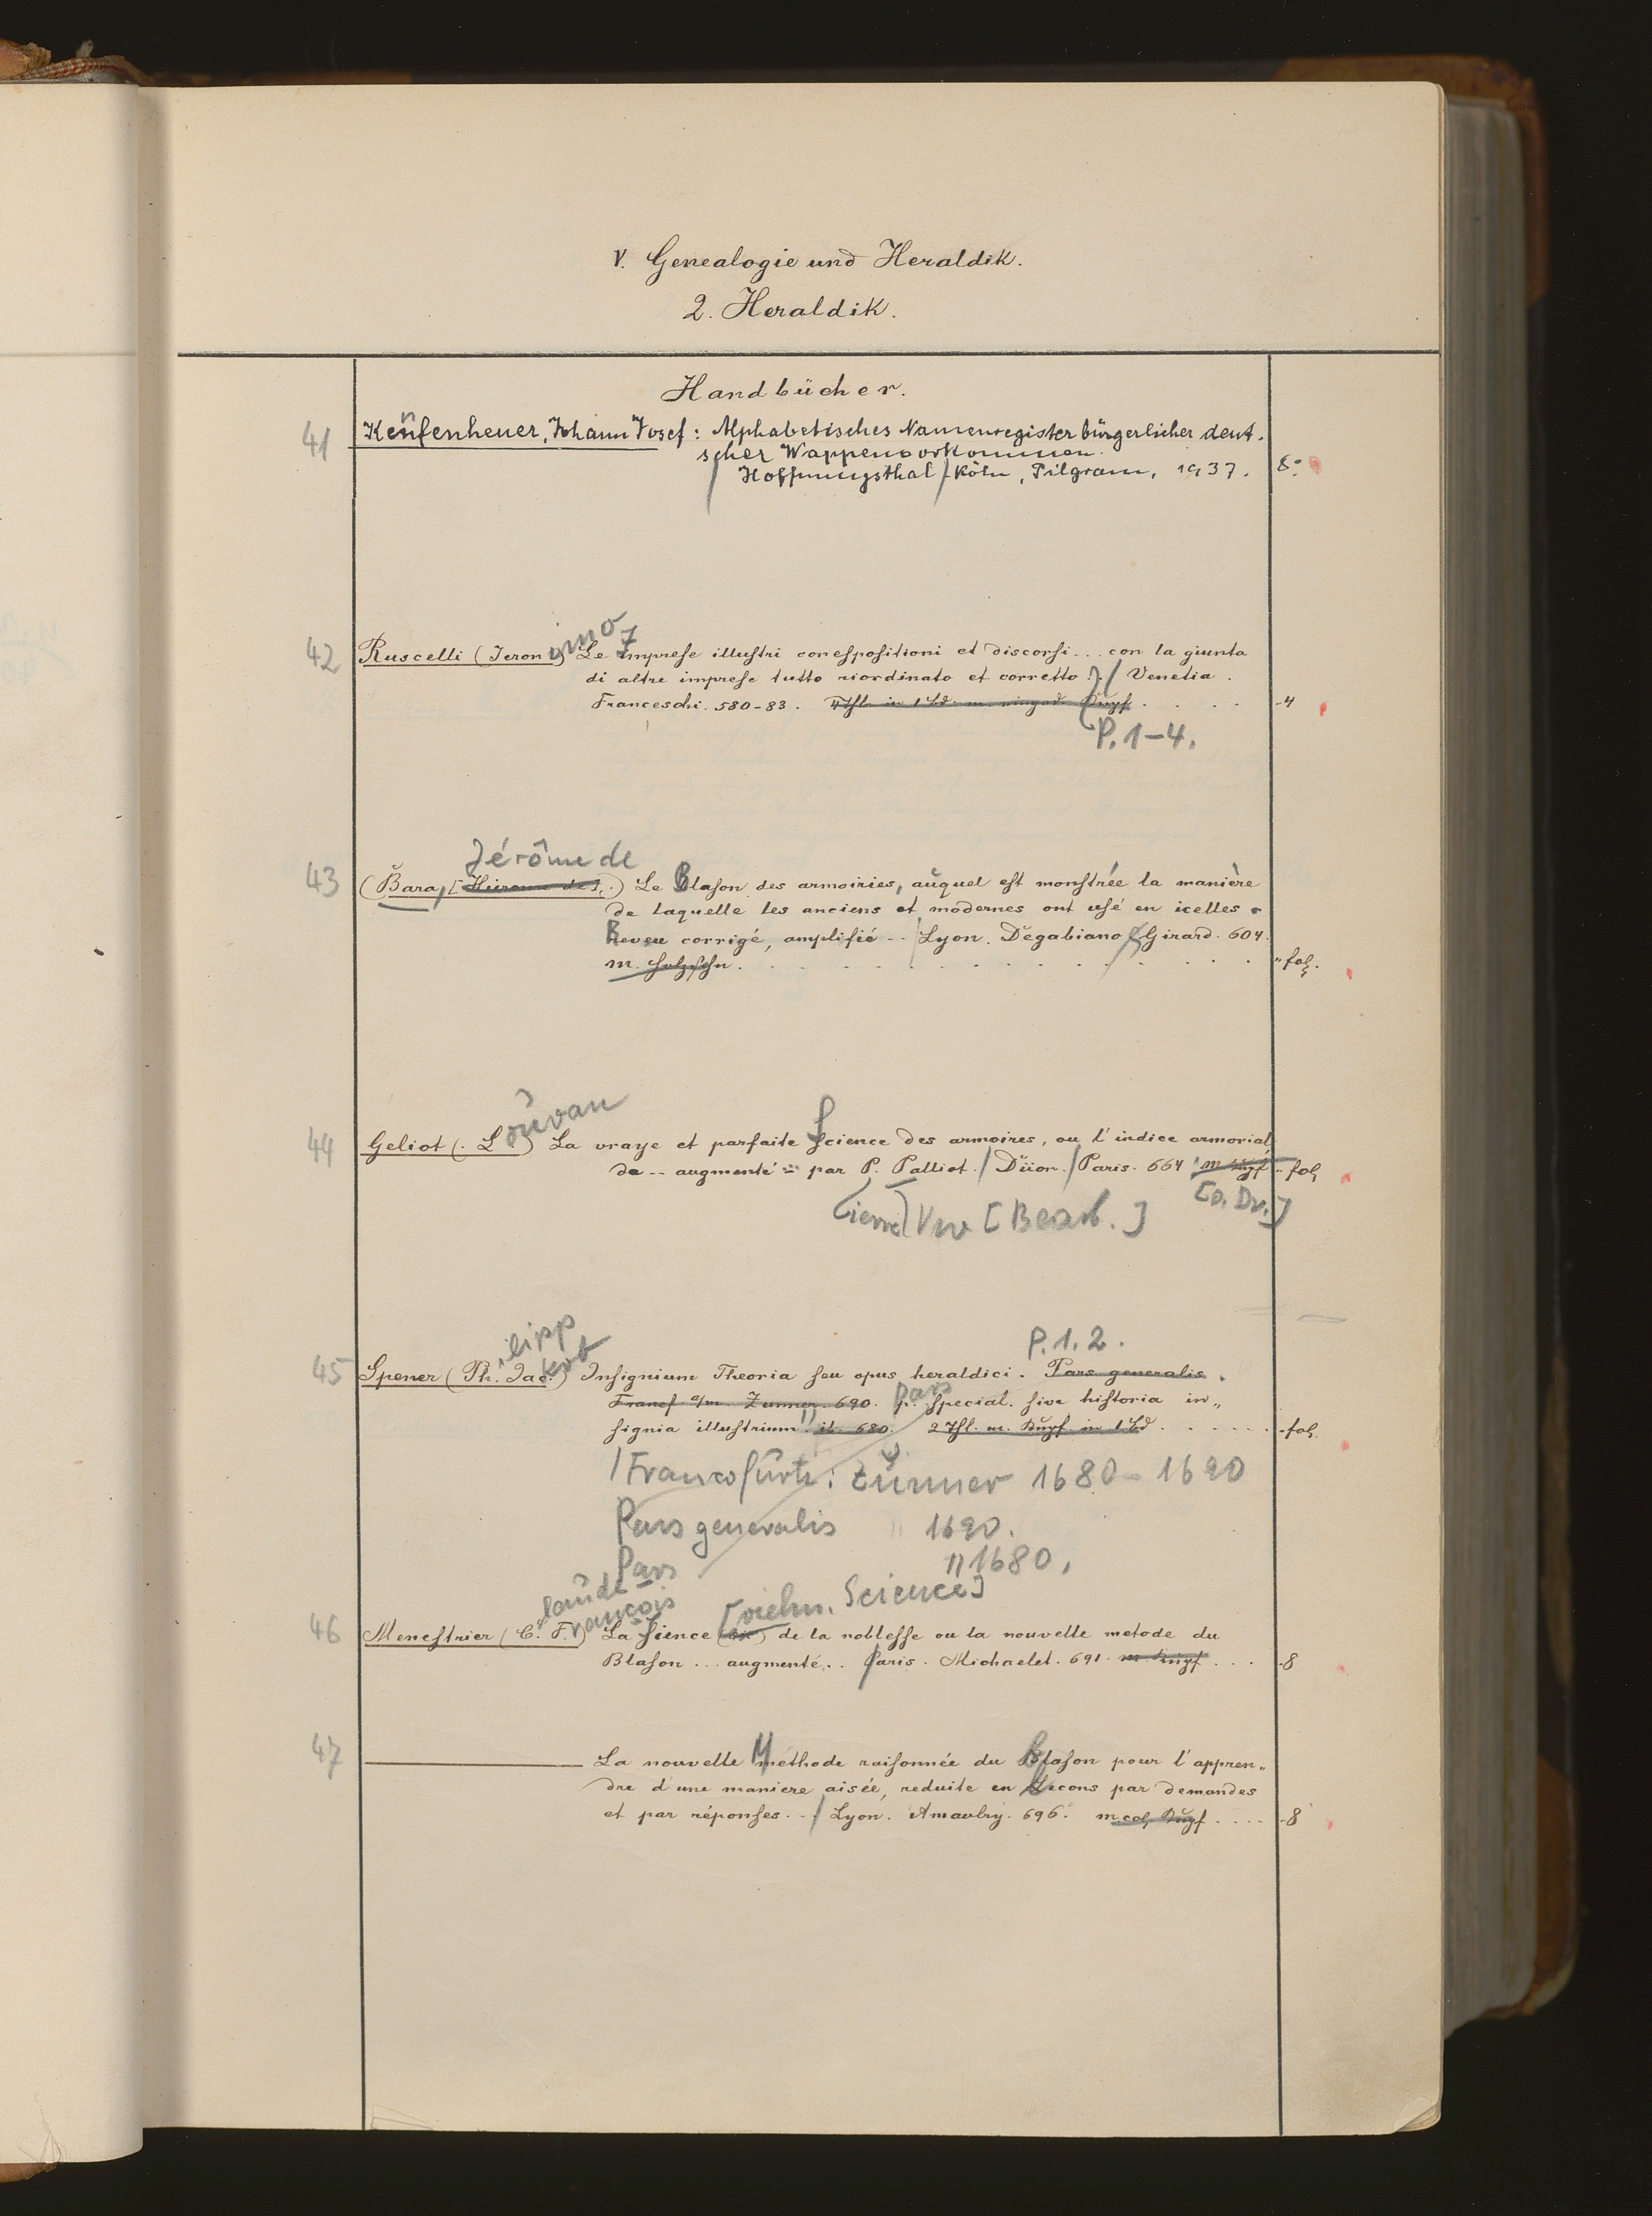 V. Genealogie und Heraldik.
2. Heraldik.
Handbücher.
41 Kenfenheuer, Johann Josef: Alphabetisches Namenregister bürgerlicher deut-
scher Wappenvorkommen.
/ Hoffnungsthal / Köln, Pilgram, 1937. 8°
imo
42 Ruscelli (Jeron.) Le Imprese illustri con espositioni et discorsi... con la giunta
di altre imprese tutto riordinato et corretto. / Venetia.
Franceschi. 580-83. 4 Thl. in 1 Bd. m. eingedr. Kupf. 4
P. 1-4.
Jérôme de
43 (Bara, [Hierome de].) Le Blason des armoiries, auquel est monstrée la manière
de laquelle les anciens et modernes ont usé en icelles.
Reveu corrigé, amplifié .. / Lyon. Degabiano / Girard. 604.
m. Holzschn. fol.
ouvan
44 Geliot (. L.) La vraye et parfaite Science des armoires, ou l'indice armorial
de .. augmenté .. par P. Palliot. / Dijon. / Paris. 664. m. Kupf. fol.
[ierre] Vw [Bearb.] [o. Dr.]
ilipp
kob P. 1. 2.
45 Spener (Ph. Jac.) Insignium Theoria seu opus heraldici. Pars generalis.
Francf a/m. Zunner. 690. Pars special. sive historia in„
signia illustrium. ib. 680. 2 Thl. m. Kupf. in 1 Bd. fol.
/ Francofurti: Zunner 1680-1690
Pars generalis " 1690.
Pars " 1680.
laude
rançois [vielm. Science]
46 Menestrier (C. F.) La Sience (sic) de la noblesse ou la nouvelle metode du
Blason ... augmenté .. Paris. Michaelet. 691. m Kupf. 8
47 ——— La nouvelle Methode raisonnée du Blason pour l'appren„
dre d'une maniere aisée, reduite en Lecons par demandes
et par réponses... / Lyon. Amaulry. 696. m. col. Kupf. 8